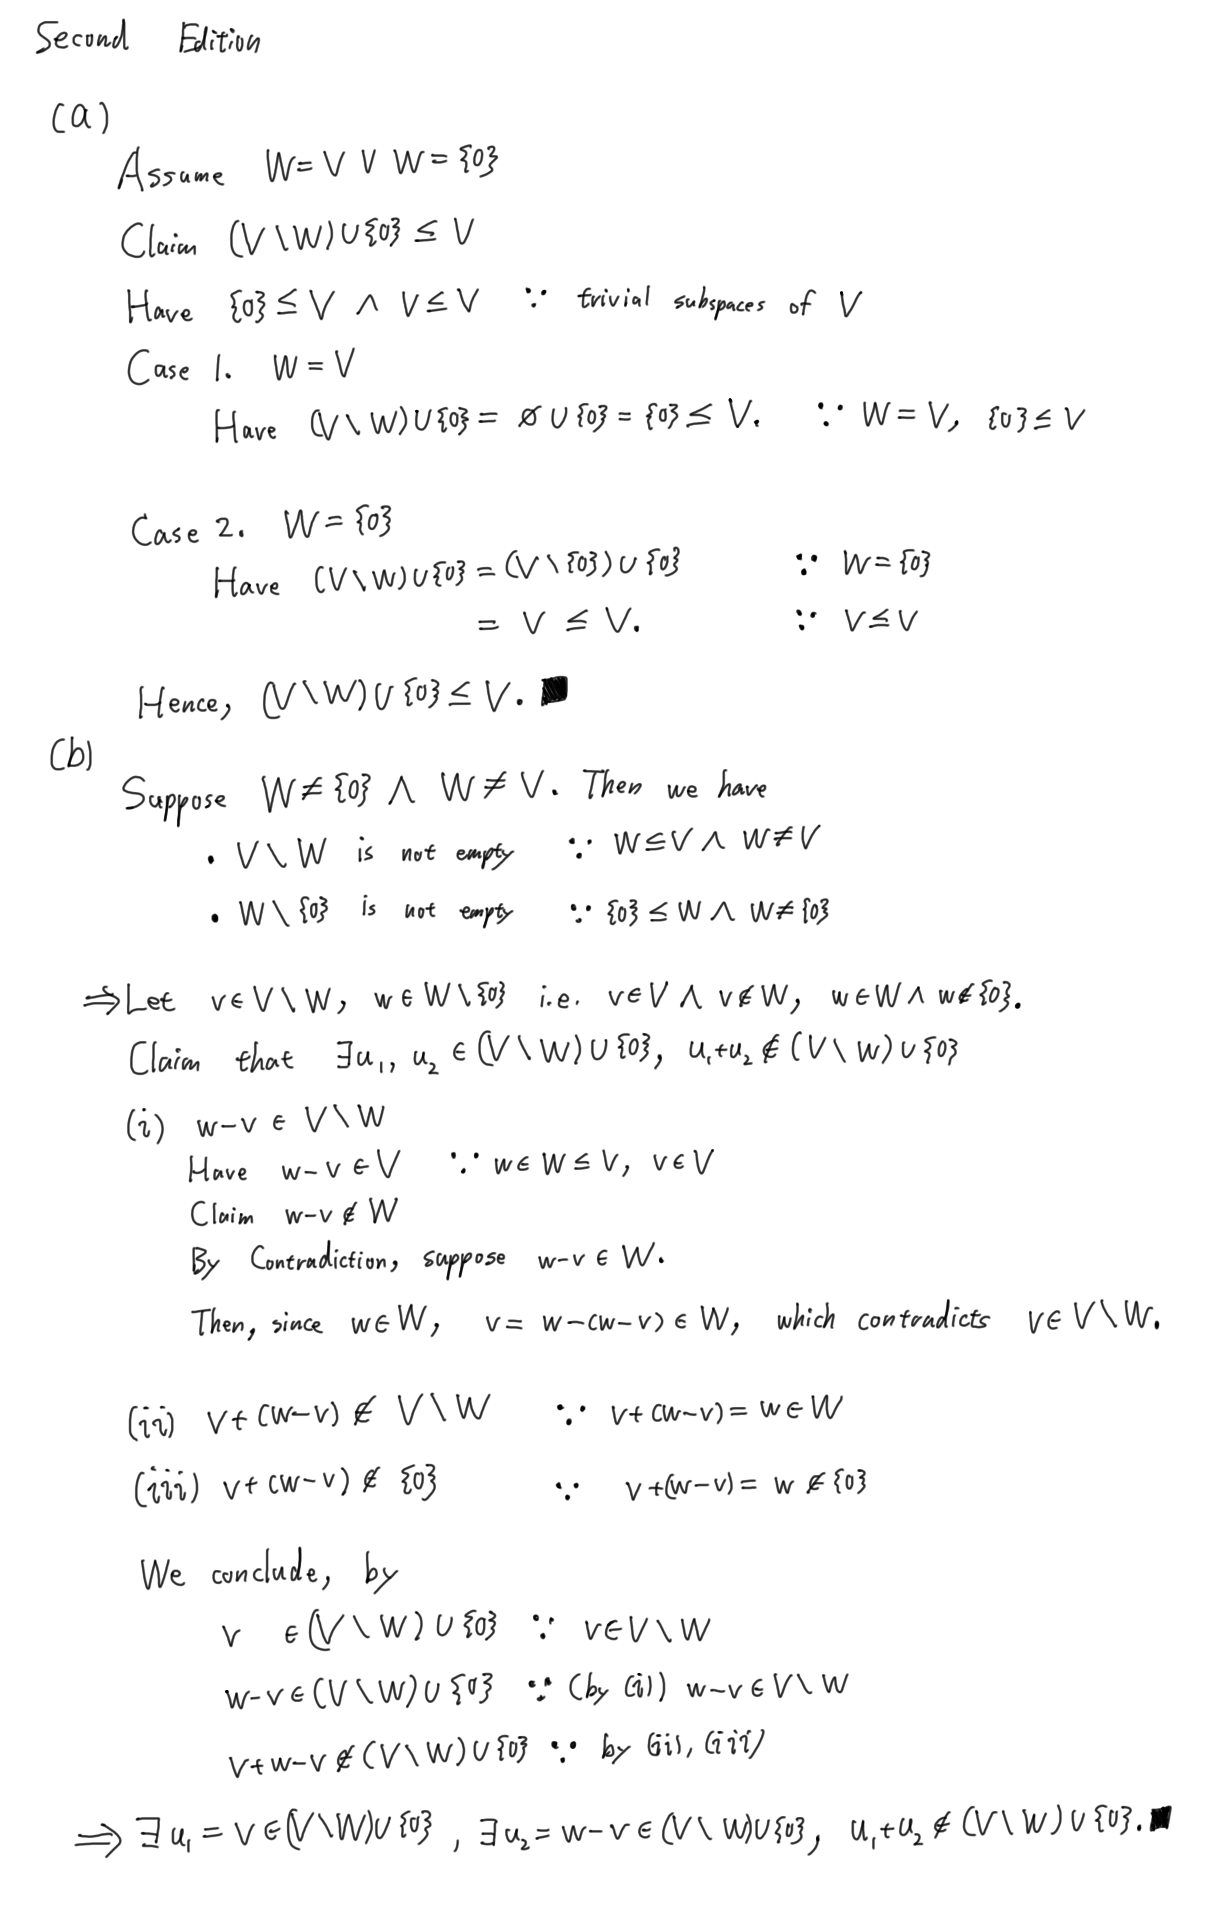 Second Edition
(a)
Assume W = V ∨ W = {0}
Claim (V \ W) ∪ {0} ≤ V
Have {0} ≤ V ∧ V ≤ V ∵ trivial subspaces of V
Case 1. W = V
Have (V \ W) ∪ {0} = ∅ ∪ {0} = {0} ≤ V. ∵ W = V, {0} ≤ V
Case 2. W = {0}
Have (V \ W) ∪ {0} = (V \ {0}) ∪ {0} ∵ W = {0}
= V ≤ V. ∵ V ≤ V
Hence, (V \ W) ∪ {0} ≤ V. ■
(b)
Suppose W ≠ {0} ∧ W ≠ V. Then we have
• V \ W is not empty ∵ W ≤ V ∧ W ≠ V
• W \ {0} is not empty ∵ {0} ≤ W ∧ W ≠ {0}
⇒ Let v ∈ V \ W, w ∈ W \ {0} i.e. v ∈ V ∧ v ∉ W, w ∈ W ∧ w ∉ {0}.
Claim that ∃u₁, u₂ ∈ (V \ W) ∪ {0}, u₁+u₂ ∉ (V \ W) ∪ {0}
(i) w-v ∈ V \ W
Have w-v ∈ V ∵ w ∈ W ≤ V, v ∈ V
Claim w-v ∉ W
By Contradiction, suppose w-v ∈ W.
Then, since w ∈ W, v = w-(w-v) ∈ W, which contradicts v ∈ V \ W.
(ii) v+(w-v) ∉ V \ W ∵ v+(w-v) = w ∈ W
(iii) v+(w-v) ∉ {0} ∵ v+(w-v) = w ∉ {0}
We conclude, by
v ∈ (V \ W) ∪ {0} ∵ v ∈ V \ W
w-v ∈ (V \ W) ∪ {0} ∵ (by (i)) w-v ∈ V \ W
v+w-v ∉ (V \ W) ∪ {0} ∵ by (ii), (iii)
⇒ ∃u₁ = v ∈ (V \ W) ∪ {0}, ∃u₂ = w-v ∈ (V \ W) ∪ {0}, u₁+u₂ ∉ (V \ W) ∪ {0}. ■